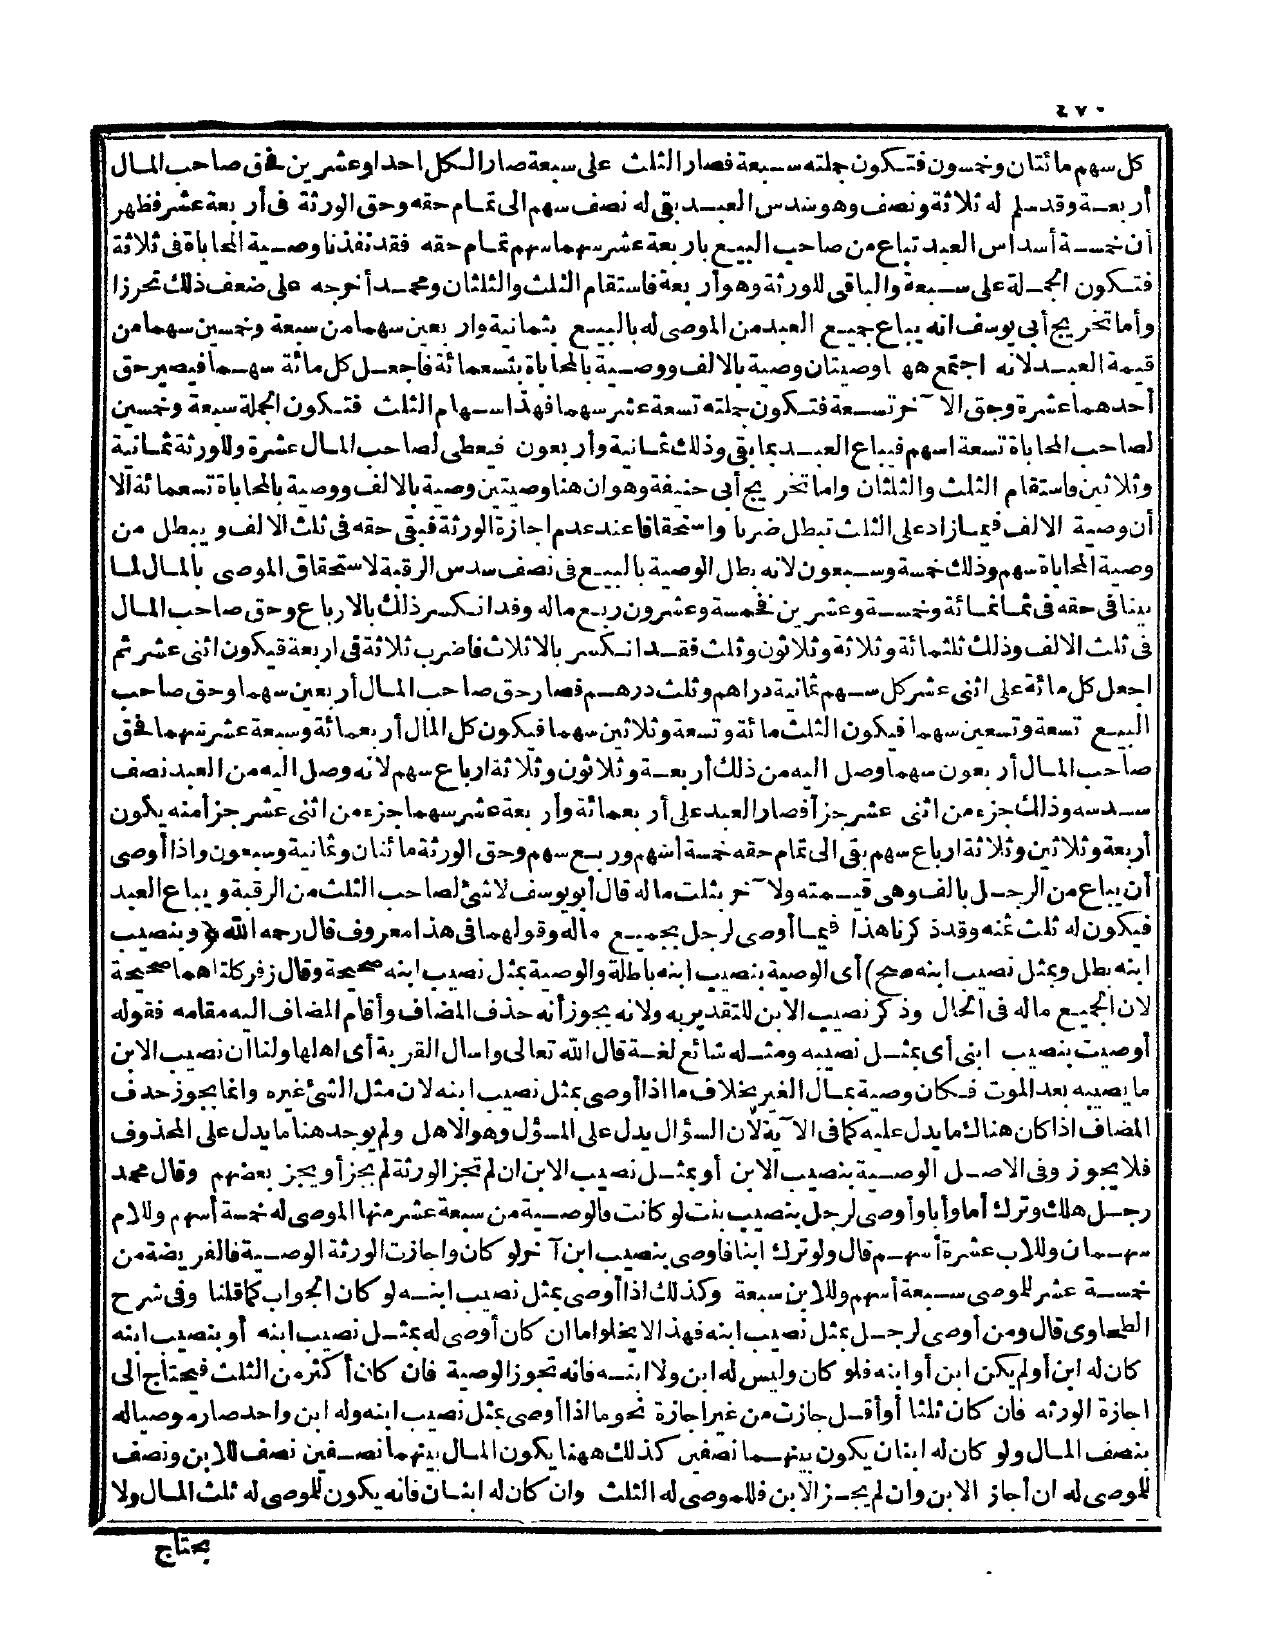 ٤٧٠
كل سهم مائتان وخمسون فتكون جلته سبعة فصار الثلث على سبعة صار الكل احدا وعشرين فحق صاحب المال
أربعة وقدسلم له ثلاثة ونصف وهو سدس العبد بقى له نصف سهم الى تمام حقه وحق الورثة فى أربعة عشر فظهر
أن خمسة أسداس العبد تباع من صاحب البيع باربعة عشر سهما سهم تمام حقه فقد نفذنا وصية المحاباة فى ثلاثة
فتكون الجملة على سبعة والباقى للورثة وهو أربعة فاستقام الثلث والثلثان ومحمد أخرجه على ضعف ذلك تحرزا
وأما تخريج أبى يوسف انه يباع جميع العبد من الموصى له بالبيع بثمانية واربعين سهما من سبعة وخمسين سهما من
قيمة العبد لانه اجتمع هها وصيتان وصية بالالف ووصية بالمحاباة بتسعمائة فاجعل كل مائة سهما فيصير حق
أحدهما عشرة وحق الآخر تسعة فتكون جلته تسعة عشر سهما فهذا سهام الثلث فتكون الجملة سبعة وخمسين
لصاحب المحاباة تسعة اسهم فيباع العبد بما بقى وذلك ثمانية وأربعون فيعطى لصاحب المال عشرة وللورثة ثمانية
وثلاثين فاستقام الثلث والثلثان واما تخريج أبى حنيفة وهو ان هنا وصيتين وصية بالالف ووصية بالمحاباة تسعمائة الا
أن وصية الالف فيما زاد على الثلث تبطل ضربا واستحقاقا عند عدم اجازة الورثة فبقى حقه فى ثلث الالف ويبطل من
وصية المحاباة سهم وذلك خمسة وسبعون لانه بطل الوصية بالبيع فى نصف سدس الرقبة لاستحقاق الموصى بالمال لما
بينا فى حقه فى ثمانمائة وخمسة وعشرين فخمسة وعشرون ربع ماله وقد انكسر ذلك بالارباع وحق صاحب المال
فى ثلث الالف وذلك ثلثمائة وثلاثة وثلاثون وثلث فقد انكسر بالاثلاث فاضرب ثلاثة فى اربعة فيكون اثنى عشر ثم
اجعل كل مائة على اثنى عشر كل سهم ثمانية دراهم وثلث درهم فصار حق صاحب المال أربعين سهما وحق صاحب
البيع تسعة وتسعين سهما فيكون الثلث مائة وتسعة وثلاثين سهما فيكون كل المال أربعمائة وسبعة عشر سهما فحق
صاحب المال أربعون سهما وصل اليه من ذلك أربعة وثلاثون وثلاثة ارباع سهم لانه وصل اليه من العبد نصف
سدسه وذلك جزء من اثنى عشر جزأ فصار العبد على أربعمائة وأربعة عشر سهما جزء من اثنى عشر جزأ منه يكون
أربعة وثلاثين وثلاثة ارباع سهم بقى الى تمام حقه خمسة أسهم وربع سهم وحق الورثة مائتان وثمانية وسبعون واذا أوصى
أن يباع من الرجل بالف وهى قيمته ولآخر بثلث ماله قال أبو يوسف لا شئ لصاحب الثلث من الرقبة ويباع العبد
فيكون له ثلث ثمنه وقد ذكرنا هذا فيما أوصى لرجل بجميع ماله وقولهما فى هذا معروف قال رحمه الله ﴿وبنصيب
ابنه بطل وبمثل نصيب ابنه صح) أى الوصية بنصيب ابنه باطلة والوصية بمثل نصيب ابنه صحيحة وقال زفر كلتاهما صحيحة
لان الجميع ماله فى الحال وذكر نصيب الابن للتقدير به ولانه يجوز أنه حذف المضاف وأقام المضاف اليه مقامه فقوله
أوصيت بنصيب ابنى أى بمثل نصيبه ومثله شائع لغة قال الله تعالى واسال القرية أى اهلها ولنا ان نصيب الابن
ما يصيبه بعد الموت فكان وصية بمال الغير بخلاف ما اذا أوصى بمثل نصيب ابنه لان مثل الشئ غيره وانما يجوز حذف
المضاف اذا كان هناك ما يدل عليه كما فى الآية لأن السؤال يدل على المسؤل وهو الاهل ولم يوجد هنا ما يدل على المحذوف
فلا يجوز وفى الاصل الوصية بنصيب الابن أو بمثل نصيب الابن ان لم تجز الورثة لم يجز أو يجز بعضهم وقال محمد
رجل هلك وترك أما وأبا وأوصى لرجل بنصيب بنت لو كانت فالوصية من سبعة عشر منها الموصى له خمسة أسهم وللام
سهمان وللاب عشرة أسهم قال ولو ترك ابنا فاوصى بنصيب ابن آخر لو كان واجازت الورثة الوصية فالفريضة من
خمسة عشر للموصى سبعة أسهم وللابن سبعة وكذلك اذا أوصى بمثل نصيب ابنه لو كان الجواب كما قلنا وفى شرح
الطحاوى قال ومن أوصى لرجل بمثل نصيب ابنه فهذا لا يخلو اما ان كان أوصى له بمثل نصيب ابنه أو بنصيب ابنه
كان له ابن أو لم يكن ابن أو ابنه فلو كان وليس له ابن ولا ابنه فانه تجوز الوصية فان كان أكثر من الثلث فيحتاج الى
اجازة الورثه فان كان ثلثا أو أقل جازت من غير اجازة نحو ما اذا أوصى بمثل نصيب ابنه وله ابن واحد صار موصيا له
بنصف المال ولو كان له ابنان يكون بينهما نصفين كذلك ههنا يكون المال بينهما نصفين نصف للابن ونصف
للموصى له ان أجاز الابن وان لم يجز الابن فللموصى له الثلث وان كان له ابنان فانه يكون للموصى له ثلث المال ولا
يحتاج